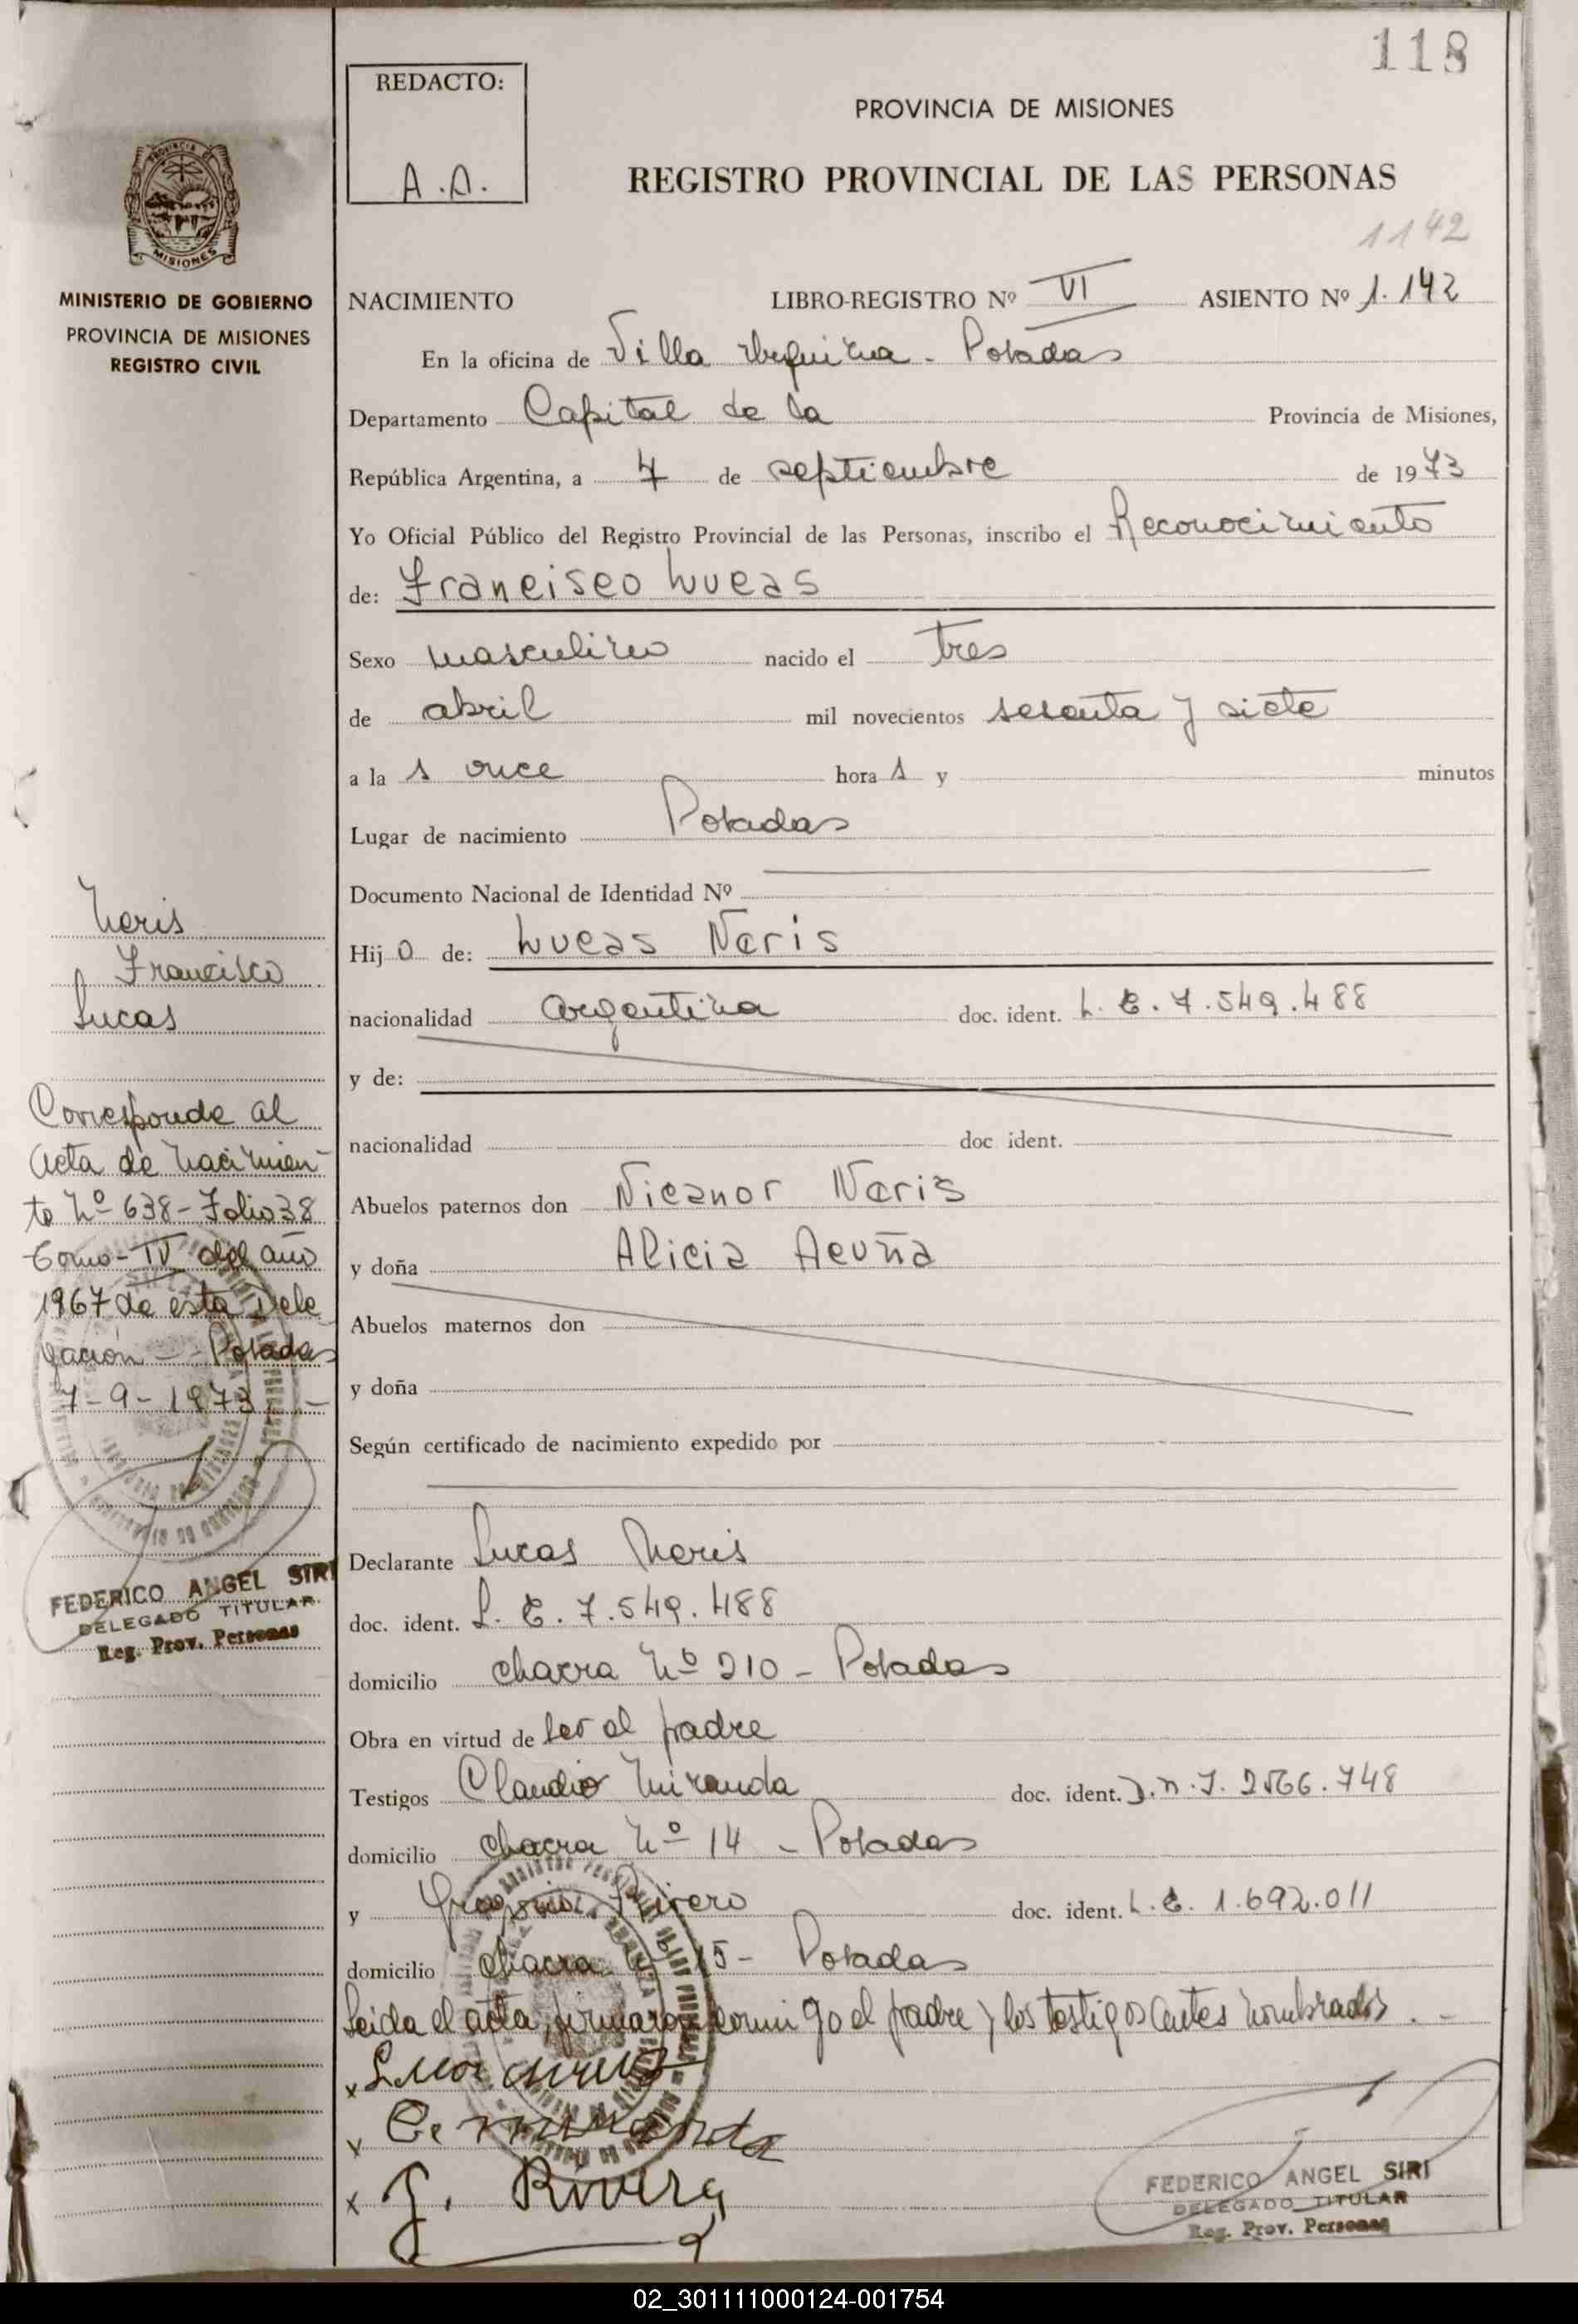 118
REDACTO:
A.A.
PROVINCIA DE MISIONES
REGISTRO PROVINCIAL DE LAS PERSONAS
1142
MISIONES
MINISTERIO DE GOBIERNO
PROVINCIA DE MISIONES
REGISTRO CIVIL
NACIMIENTO LIBRO-REGISTRO Nº VI ASIENTO Nº 1.142
En la oficina de Villa Urquiza - Posadas
Departamento Capital de la Provincia de Misiones,
República Argentina, a 7 de septiembre de 1973
Yo Oficial Público del Registro Provincial de las Personas, inscribo el Reconocimiento
de: Francisco Lucas
Sexo masculino nacido el tres
de abril mil novecientos sesenta y siete
a la s once hora s y minutos
Lugar de nacimiento Posadas
Documento Nacional de Identidad Nº
Hij o de: Lucas Neris
nacionalidad argentina doc. ident. L. E. 7.549.488
y de:
nacionalidad doc ident.
Abuelos paternos don Nicanor Neris
y doña Alicia Acuña
Abuelos maternos don
y doña
Según certificado de nacimiento expedido por
Declarante Lucas Neris
doc. ident. L. E. 7.549.488
domicilio chacra Nº 210 - Posadas
Obra en virtud de ser el padre
Testigos Claudio Miranda doc. ident. D.N.I. 2566.748
domicilio chacra Nº 14 - Posadas
y Gregorio Rivero doc. ident. L.E. 1.692.011
domicilio chacra 15 - Posadas
Leida el acta, firmaron conmigo el padre y los testigos antes nombrados. -
x
x
x J. Rivera
FEDERICO ANGEL SIRI
DELEGADO TITULAR
Reg. Prov. Personas
Neris
Francisco
Lucas
Corresponde al
acta de nacimien-
to Nº 638 - Folio 38
Tomo - IV del año
1967 de esta Dele
gación - Posadas
7 - 9 - 1973. -
FEDERICO ANGEL SIRI
DELEGADO TITULAR
Reg. Prov. Personas
02_301111000124-001754